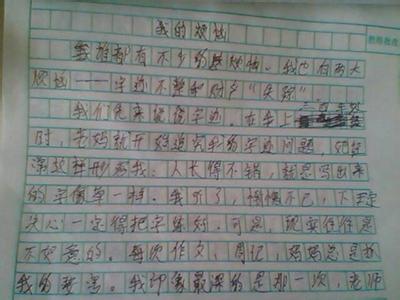 我的烦恼
谁都有不少的烦恼。我也有两大
烦恼——字迹不整和"失踪"
我们先来说字迹。在上三年级
时，老妈就开始追究我的字迹问题，她
这样形容我：人长得不错，就是写出来
的字像草一样。我听了，惭愧不已，下定
决心一定得把字练好。可是，现实往往是
不如意的。每次作文，周记，妈妈总是
我的要害。我印象最深的是那一次，老师